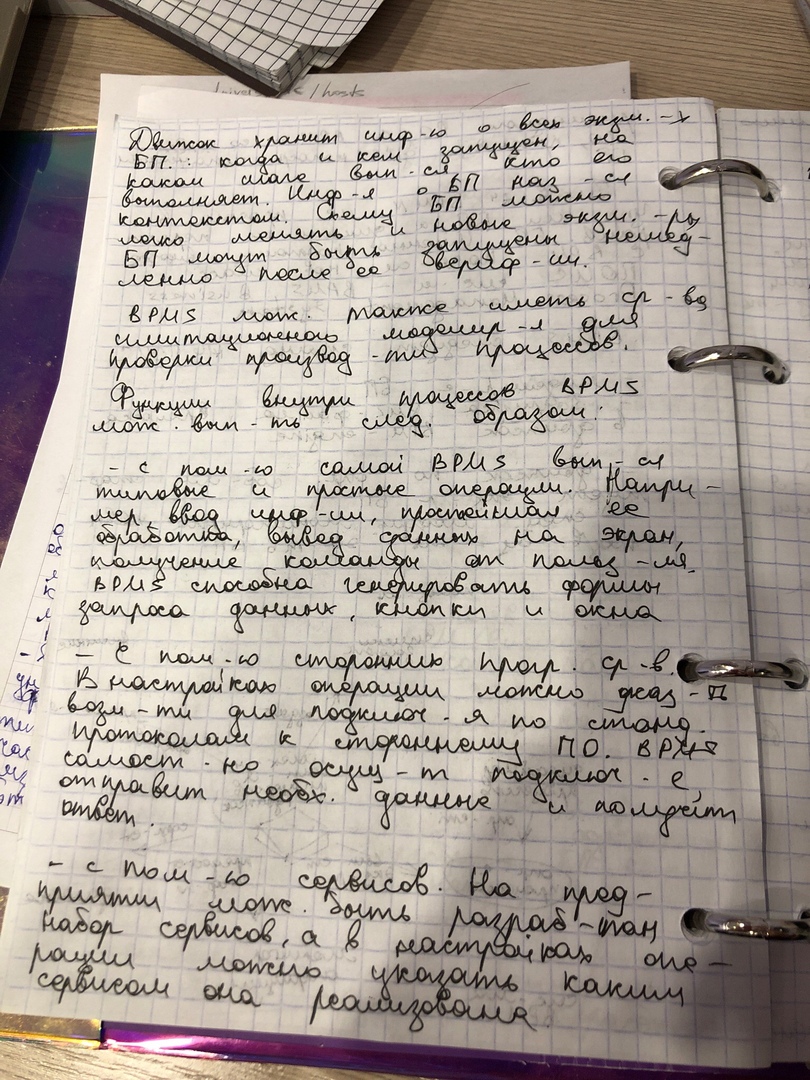 Движок хранит инф-ю о всех экзм.-х
БП.: когда и кем запущен, на
каком шаге вып-ся кто его
выполняет. Инф-я о БП наз-ся
контекстом. Схему БП можно
легко менять и новые экзм.-ры
БП могут быть запущены немед-
ленно после ее вериф-ии.
BPMS мож. также иметь ср-ва
имитационного моделир-я для
проверки производ-ти процессов.
Функции внутри процессов BPMS
мож. вып-ть след. образом:
- с пом-ю самой BPMS вып-ся
типовые и простые операции. Напри-
мер, ввод инф-ии, простейшая ее
обработка, вывод данных на экран,
получение команды от польз-ля.
BPMS способна генерировать формы
запроса данных, кнопки и окна
- С пом-ю сторонних прогр. ср-в.
В настройках операции можно
возм-ти для подключ-я по станд.
протоколам к стороннему ПО. BPMS
самост-но осущ-т подключ-е,
отправит необх. данные и получит
ответ.
- с пом-ю сервисов. На пред-
приятии мож. быть разраб-тан
набор сервисов, а в настройках опе-
рации можно указать каким
сервисом она реализована.